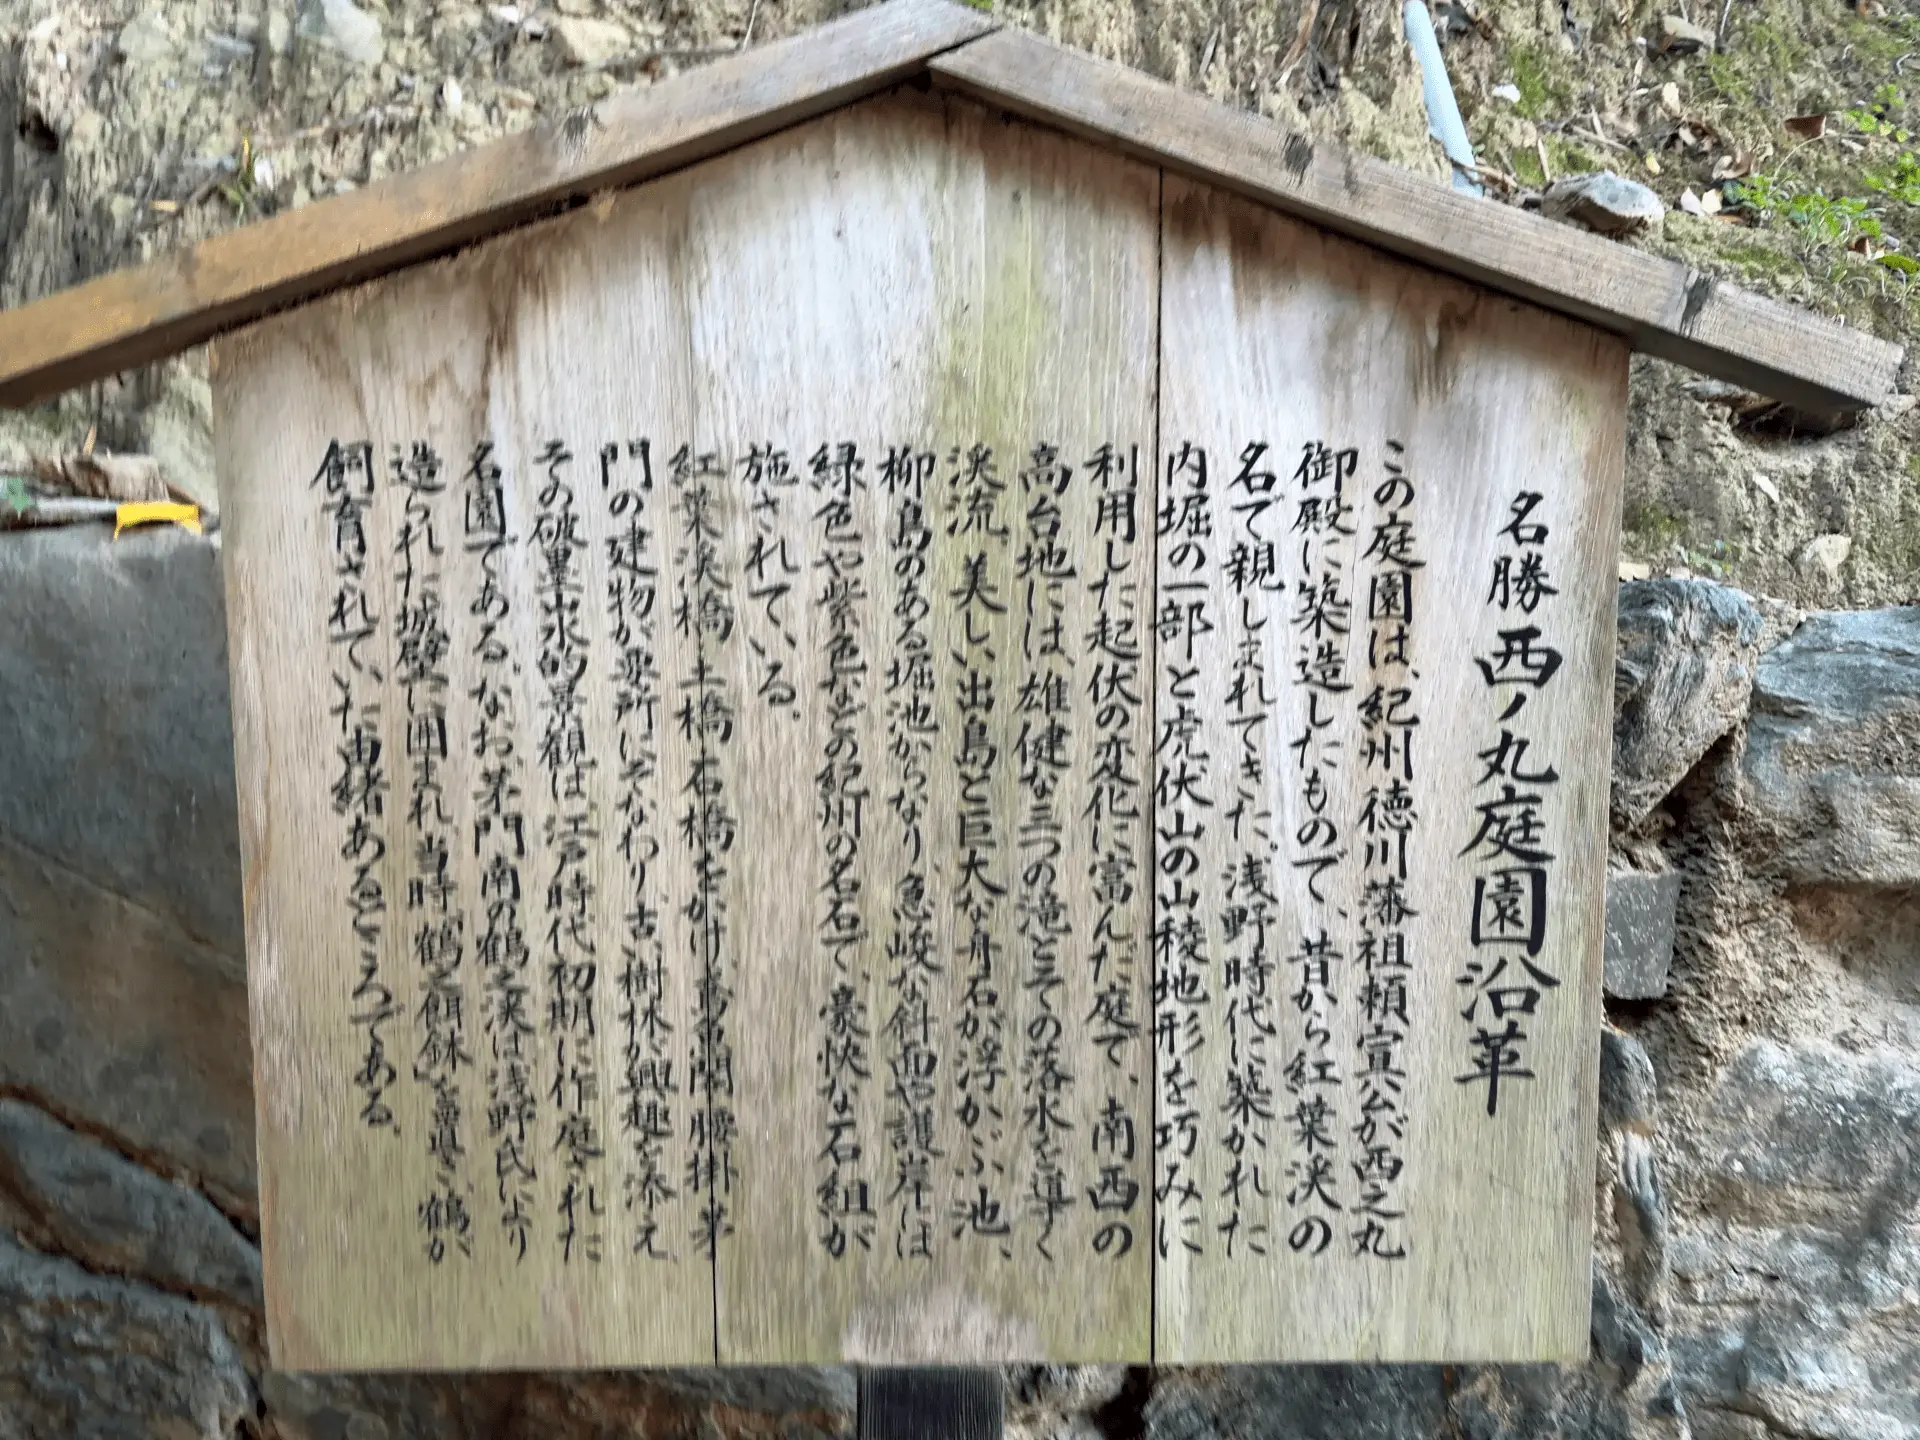 名勝 西ノ丸庭園沿革
この庭園は、紀州徳川藩祖頼宣公が西之丸
御殿に築造したもので、昔から紅葉渓の
名で親しまれてきた。浅野時代に築かれた
内堀の一部と虎伏山の山稜地形を巧みに
利用した起伏の変化に富んだ庭で、南西の
高台地には、雄健な三つの滝とその落水を導く
渓流、美しい出島と巨大な舟石が浮かぶ池、
柳島のある堀池からなり、急峻な斜面や護岸には
緑色や紫色などの紀州の名石で、豪快な石組が
施されている。
紅葉渓橋、土橋、石橋をかけ、鳶魚閣、腰掛、茅
門の建物が要所にそなわり、古い樹林が興趣を添え、
その破墨山水的景観は、江戸時代初期に作庭された
名園である。なお、茅門南の鶴之渓は浅野氏により
造られた城壁に囲まれ、当時、鶴が
飼育されていた由緒あるところである。